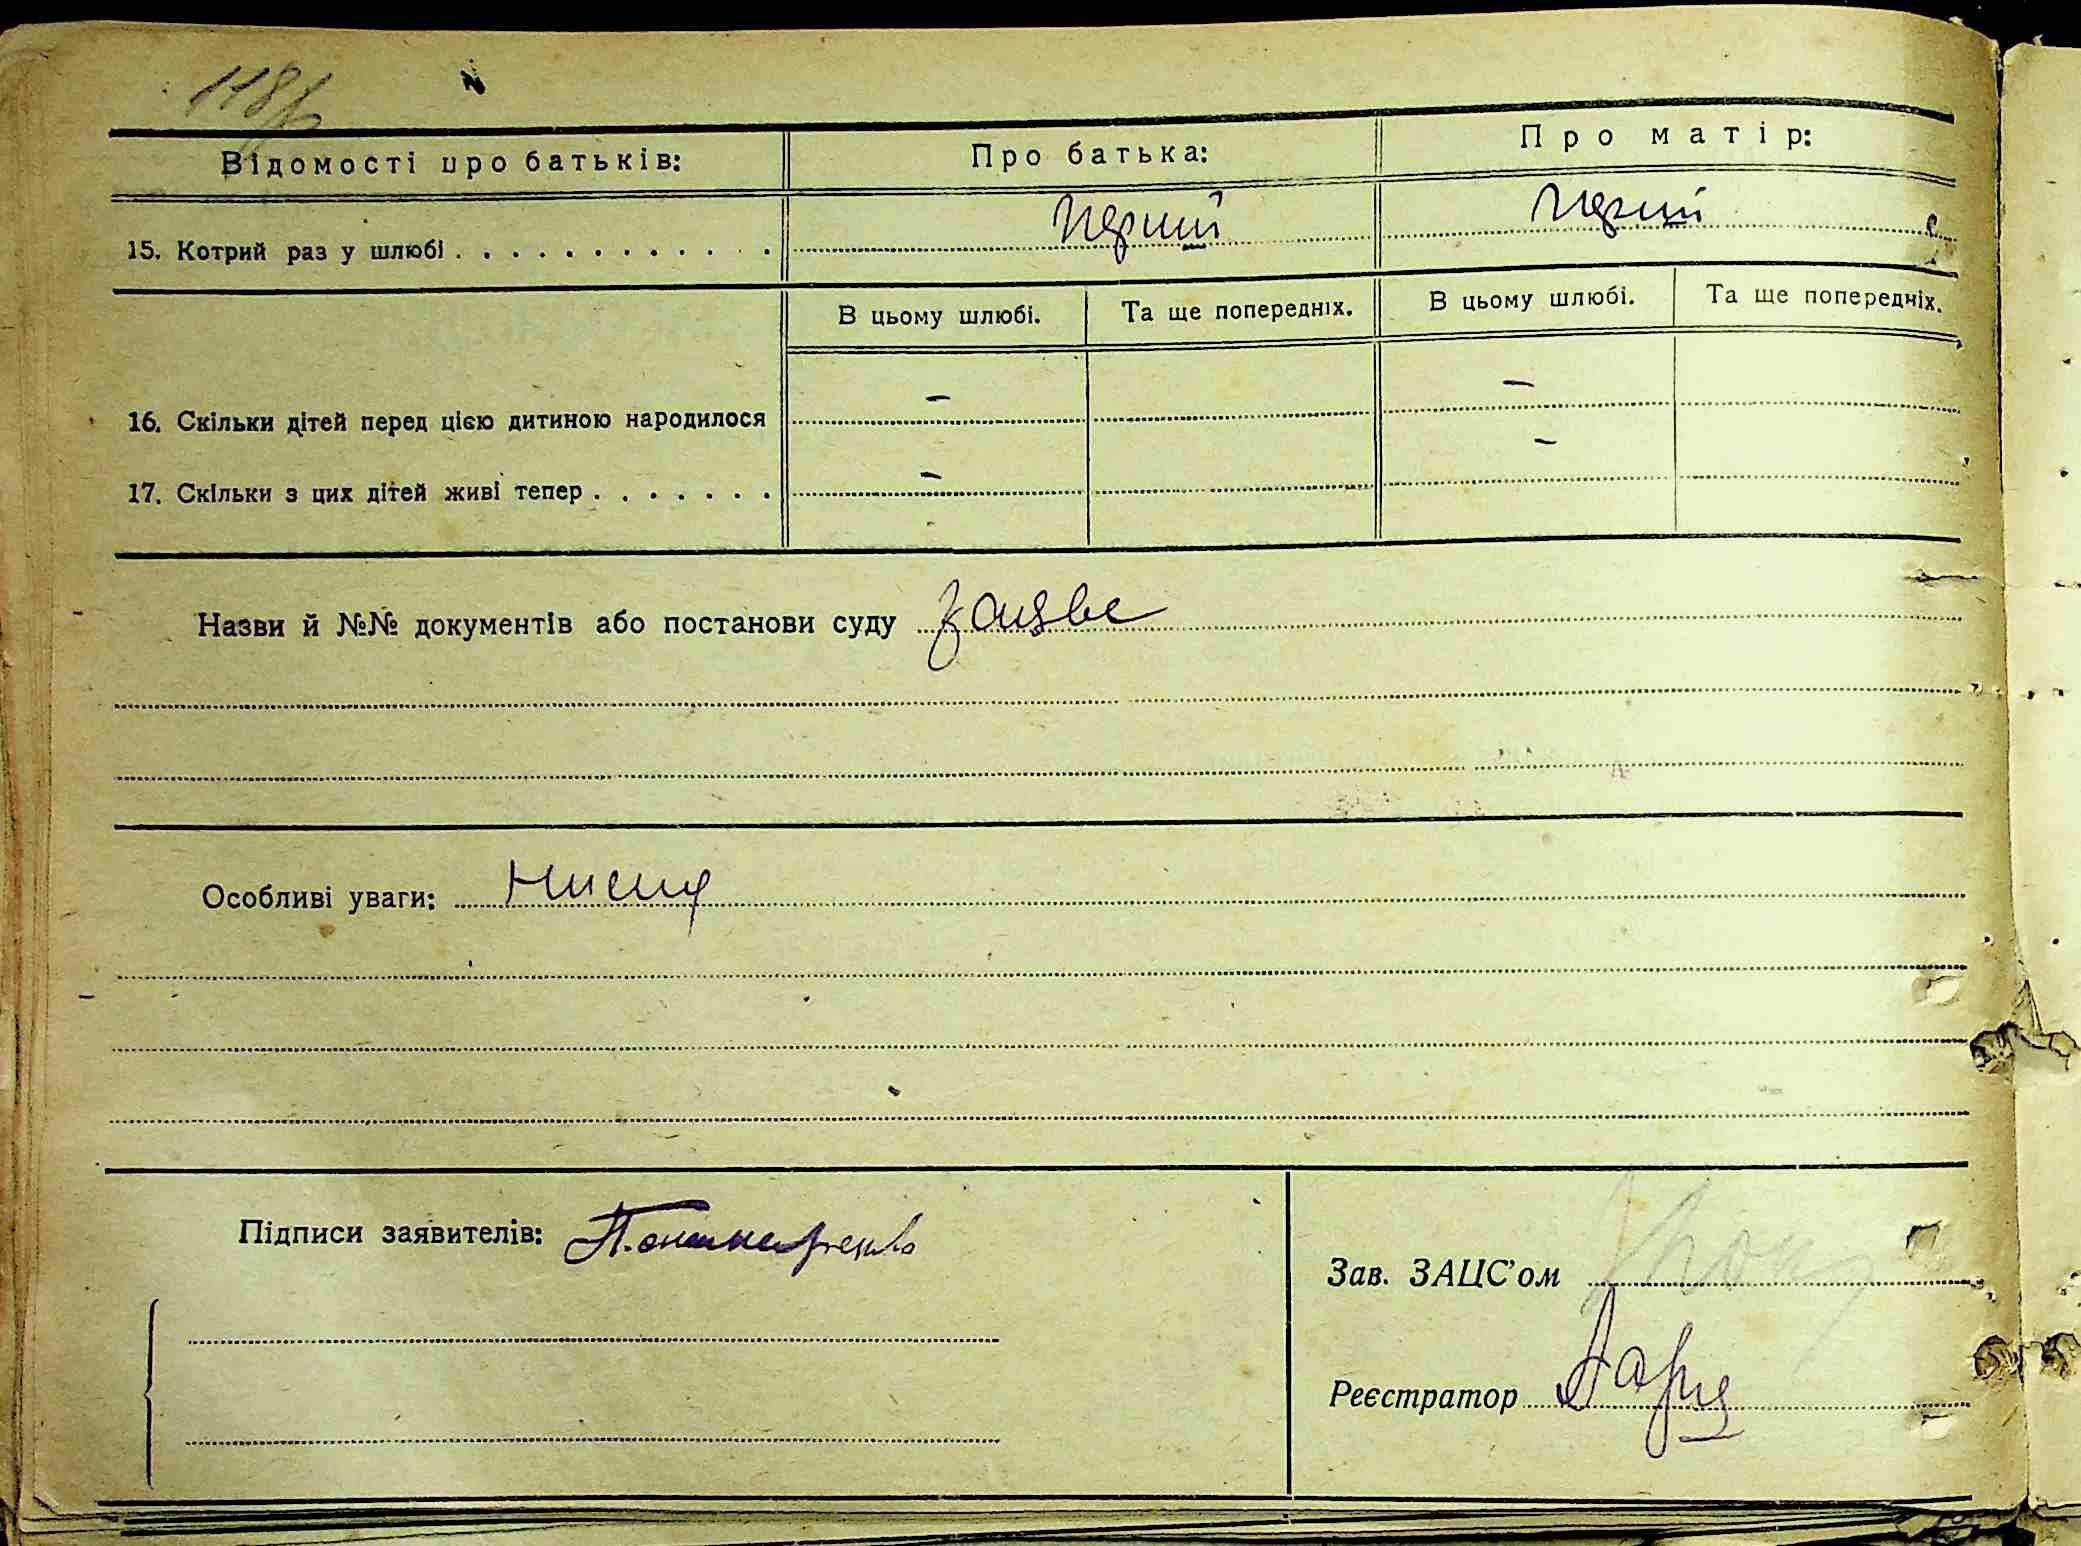 118
Відомості про батьків: Про батька: Про матір:
15. Котрий раз у шлюбі . . . . . . . . . . . . Перший Перший
В цьому шлюбі. Та ще попередніх. В цьому шлюбі. Та ще попередніх.
16. Скільки дітей перед цією дитиною народилося – –
17. Скільки з цих дітей живі тепер . . . . . . . – –
Назви й №№ документів або постанови суду
Особливі уваги:
Підписи заявителів: Пономаренко
Зав. ЗАЦС'ом
Реєстратор